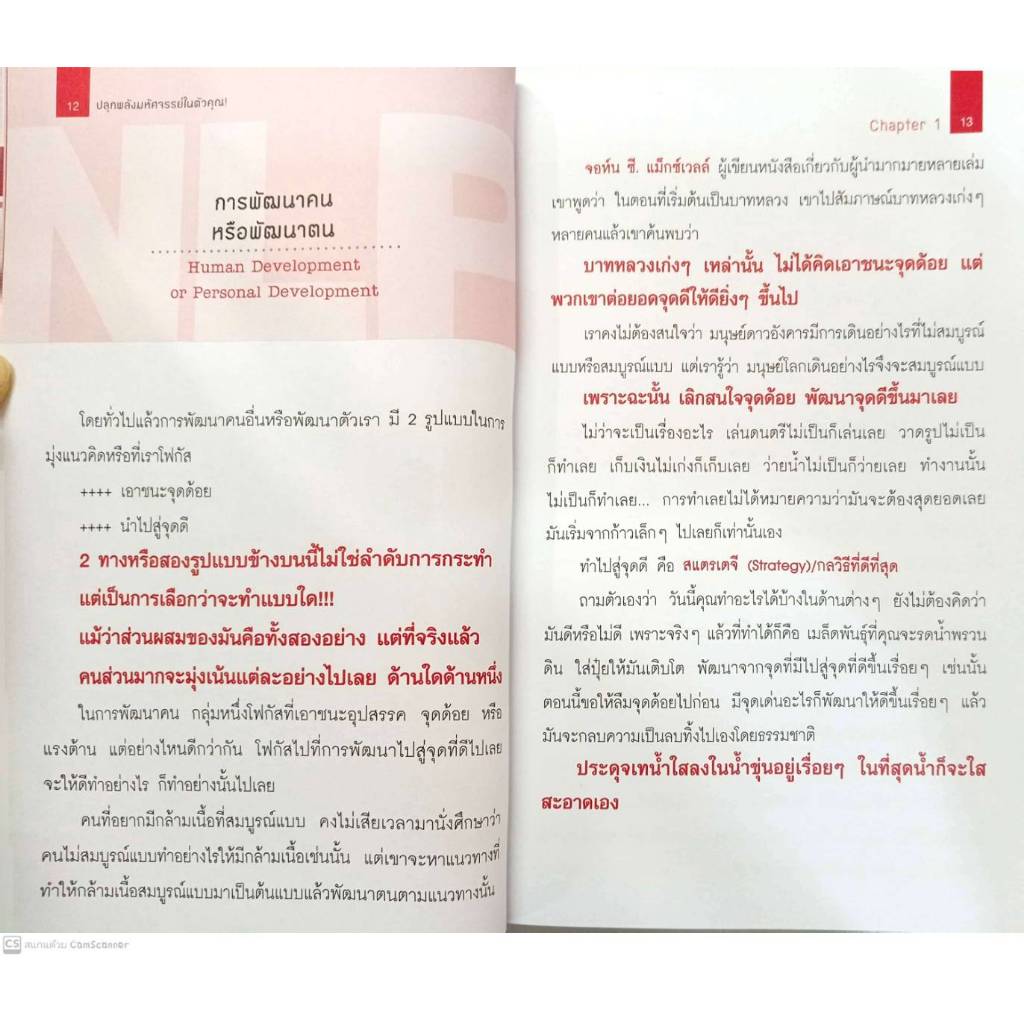 12
ปลุกพลังมหัศจรรย์ในตัวคุณ!
NLP
การพัฒนาคน
หรือพัฒนาตน
Human Development
or Personal Development
โดยทั่วไปแล้วการพัฒนาคนอื่นหรือพัฒนาตัวเรา มี 2 รูปแบบในการ
มุ่งแนวคิดหรือที่เราโฟกัส
++++ เอาชนะจุดด้อย
++++ นำไปสู่จุดดี
2 ทางหรือสองรูปแบบข้างบนนี้ไม่ใช่ลำดับการกระทำ
แต่เป็นการเลือกว่าจะทำแบบใด!!!
แม้ว่าส่วนผสมของมันคือทั้งสองอย่าง แต่ที่จริงแล้ว
คนส่วนมากจะมุ่งเน้นแต่ละอย่างไปเลย ด้านใดด้านหนึ่ง
ในการพัฒนาคน กลุ่มหนึ่งโฟกัสที่เอาชนะอุปสรรค จุดด้อย หรือ
แรงต้าน แต่อย่างไหนดีกว่ากัน โฟกัสไปที่การพัฒนาไปสู่จุดที่ดีไปเลย
จะให้ดีทำอย่างไร ก็ทำอย่างนั้นไปเลย
คนที่อยากมีกล้ามเนื้อที่สมบูรณ์แบบ คงไม่เสียเวลามานั่งศึกษาว่า
คนไม่สมบูรณ์แบบทำอย่างไรให้มีกล้ามเนื้อเช่นนั้น แต่เขาจะหาแนวทางที่
ทำให้กล้ามเนื้อสมบูรณ์แบบมาเป็นต้นแบบแล้วพัฒนาตนตามแนวทางนั้น
CS สแกนด้วย CamScanner
Chapter 1 13
จอห์น ซี. แม็กซ์เวลล์ ผู้เขียนหนังสือเกี่ยวกับผู้นำมากมายหลายเล่ม
เขาพูดว่า ในตอนที่เริ่มต้นเป็นบาทหลวง เขาไปสัมภาษณ์บาทหลวงเก่งๆ
หลายคนแล้วเขาค้นพบว่า
บาทหลวงเก่งๆ เหล่านั้น ไม่ได้คิดเอาชนะจุดด้อย แต่
พวกเขาต่อยอดจุดดีให้ดียิ่งๆ ขึ้นไป
เราคงไม่ต้องสนใจว่า มนุษย์ดาวอังคารมีการเดินอย่างไรที่ไม่สมบูรณ์
แบบหรือสมบูรณ์แบบ แต่เรารู้ว่า มนุษย์โลกเดินอย่างไรจึงจะสมบูรณ์แบบ
เพราะฉะนั้น เลิกสนใจจุดด้อย พัฒนาจุดดีขึ้นมาเลย
ไม่ว่าจะเป็นเรื่องอะไร เล่นดนตรีไม่เป็นก็เล่นเลย วาดรูปไม่เป็น
ก็ทำเลย เก็บเงินไม่เก่งก็เก็บเลย ว่ายน้ำไม่เป็นก็ว่ายเลย ทำงานนั้น
ไม่เป็นก็ทำเลย... การทำเลยไม่ได้หมายความว่ามันจะต้องสุดยอดเลย
มันเริ่มจากก้าวเล็กๆ ไปเลยก็เท่านั้นเอง
ทำไปสู่จุดดี คือ สแตรเตจี (Strategy)/กลวิธีที่ดีที่สุด
ถามตัวเองว่า วันนี้คุณทำอะไรได้บ้างในด้านต่างๆ ยังไม่ต้องคิดว่า
มันดีหรือไม่ดี เพราะจริงๆ แล้วที่ทำได้ก็คือ เมล็ดพันธุ์ที่คุณจะรดน้ำพรวน
ดิน ใส่ปุ๋ยให้มันเติบโต พัฒนาจากจุดที่มีไปสู่จุดที่ดีขึ้นเรื่อยๆ เช่นนั้น
ตอนนี้ขอให้ลืมจุดด้อยไปก่อน มีจุดเด่นอะไรก็พัฒนาให้ดีขึ้นเรื่อยๆ แล้ว
มันจะกลบความเป็นลบทิ้งไปเองโดยธรรมชาติ
ประดุจเทน้ำใสลงในน้ำขุ่นอยู่เรื่อยๆ ในที่สุดน้ำก็จะใส
สะอาดเอง